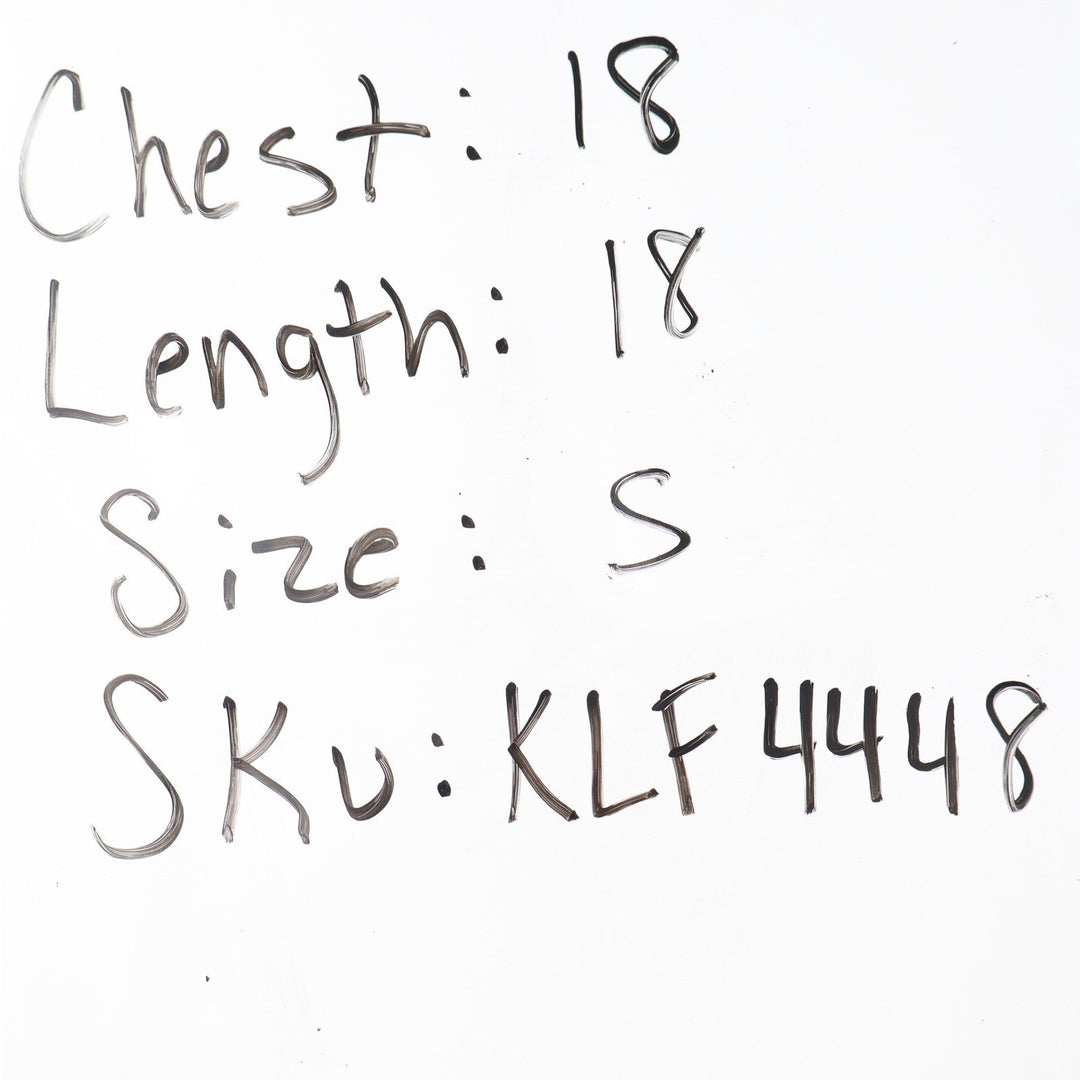 Chest: 18
Length: 18
Size: S
SKU: KLF4448